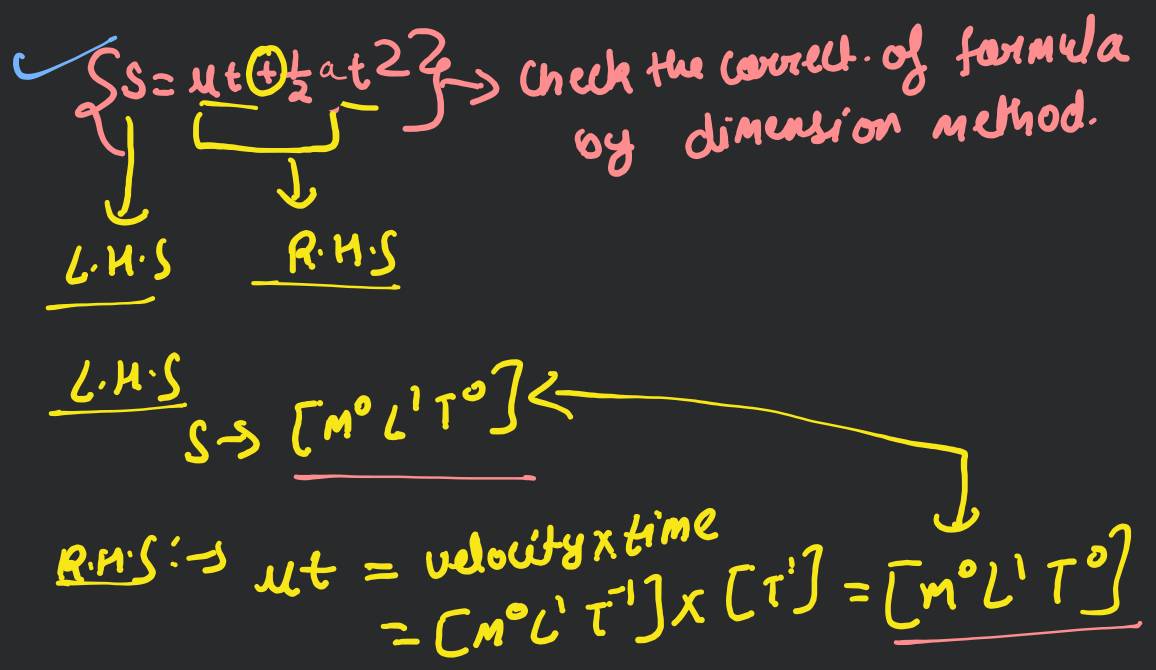 {S = ut + ½ at2} → Check the correct. of formula
by dimension method.
L.H.S R.H.S
L.H.S
S → [M⁰ L¹ T⁰]
R.H.S :→ ut = velocity x time
= [M⁰ L¹ T⁻¹] x [T¹] = [M⁰ L¹ T⁰]